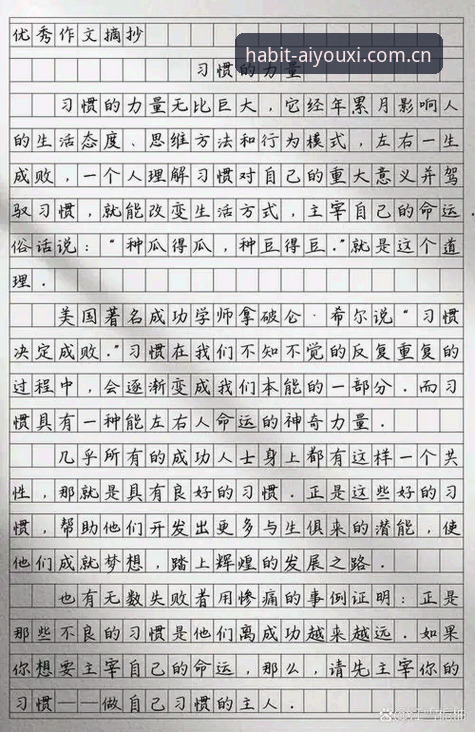 优秀作文摘抄
habit-aiyouxi.com.cn
习惯的力量
习惯的力量无比巨大，它经年累月影响人
的生活态度、思维方法和行为模式，左右一生
成败，一个人理解习惯对自己的重大意义并驾
驭习惯，就能改变生活方式，主宰自己的命运
俗话说：“种瓜得瓜，种豆得豆.”就是这个道
理.
美国著名成功学师拿破仑·希尔说“习惯
决定成败.”习惯在我们不知不觉的反复重复的
过程中，会逐渐变成我们本能的一部分.而习
惯具有一种能左右人命运的神奇力量.
几乎所有的成功人士身上都有这样一个共
性，那就是具有良好的习惯.正是这些好的习
惯，帮助他们开发出更多与生俱来的潜能，使
他们成就梦想，踏上辉煌的发展之路.
也有无数失败者用惨痛的事例证明：正是
那些不良的习惯是他们离成功越来越远.如果
你想要主宰自己的命运，那么，请先主宰你的
习惯——做自己习惯的主人.